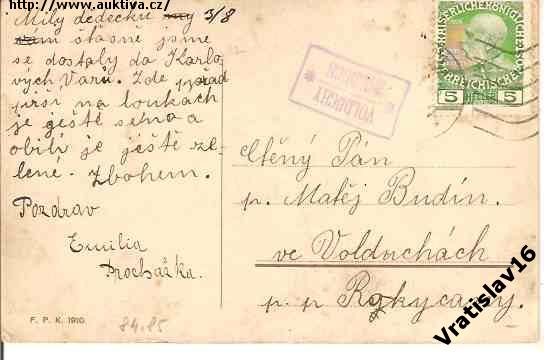 http://www.auktiva.cz/
Milý dedečku my 3/8
vám šťasně jsme
se dostaly do Karlo
vých Varů. Zde pořad
prší na loukách
je ještě sena a
obilí je ještě ze-
lené. Zbohem.
Pozdrav
Emilia
Procházka.
F. P. K. 1910.
84.85
KAISERLICHE KÖNIGLICHE
ÖSTERREICHISCHE
5 5
VOLDUCHY
Ctěný Pán
p. Matěj Budín.
ve Volduchách
p. p Rokycany.
Vratislav16